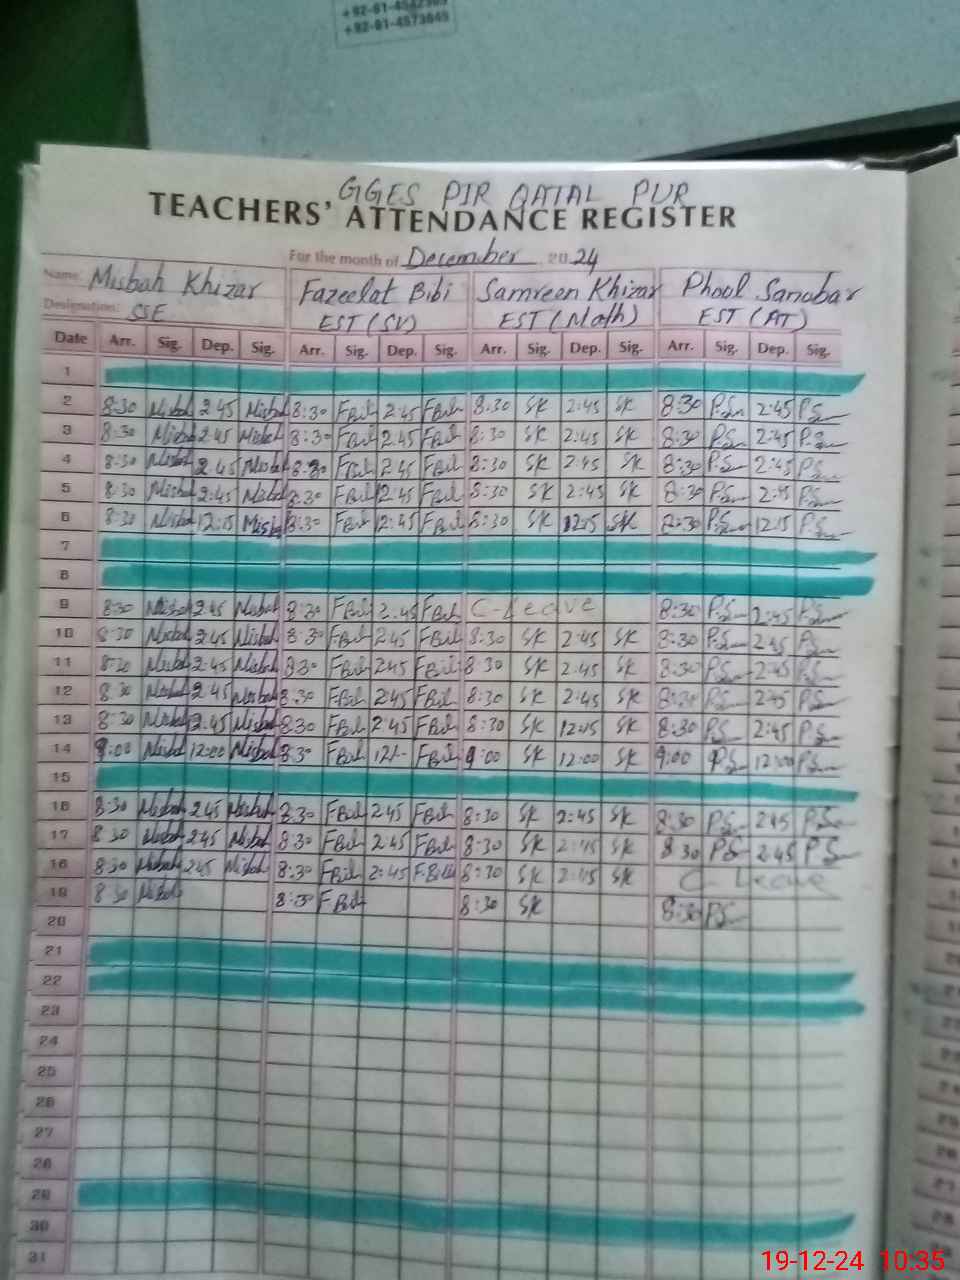 +92-61-4573645
GGES PIR QATAL PUR
TEACHERS' ATTENDANCE REGISTER
For the month of December 2024
Name: Misbah Khizar Fazeelat Bibi Samreen Khizar Phool Sanobar
Designation: SSE EST (SV) EST (Math) EST (AT)
Date Arr. Sig. Dep. Sig. Arr. Sig. Dep. Sig. Arr. Sig. Dep. Sig. Arr. Sig. Dep. Sig.
1
2 8:30 Misbah 2:45 Misbah 8:30 FBibi 2:45 FBibi 8:30 SK 2:45 SK 8:30 P.S 2:45 P.S
3 8:30 Misbah 2:45 Misbah 8:30 FBibi 2:45 FBibi 8:30 SK 2:45 SK 8:30 P.S 2:45 P.S
4 8:30 Misbah 2:45 Misbah 8:30 FBibi 2:45 FBibi 8:30 SK 2:45 SK 8:30 P.S 2:45 P.S
5 8:30 Misbah 2:45 Misbah 8:30 FBibi 2:45 FBibi 8:30 SK 2:45 SK 8:30 P.S 2:45 P.S
6 8:30 Misbah 12:15 Misbah 8:30 FBibi 12:45 FBibi 8:30 SK 12:15 SK 8:30 P.S 12:15 P.S
7
8
9 8:30 Misbah 2:45 Misbah 8:30 FBibi 2:45 FBibi C-Leave 8:30 P.S 2:45 P.S
10 8:30 Misbah 2:45 Misbah 8:30 FBibi 2:45 FBibi 8:30 SK 2:45 SK 8:30 P.S 2:45 P.S
11 8:30 Misbah 2:45 Misbah 8:30 FBibi 2:45 FBibi 8:30 SK 2:45 SK 8:30 P.S 2:45 P.S
12 8:30 Misbah 2:45 Misbah 8:30 FBibi 2:45 FBibi 8:30 SK 2:45 SK 8:30 P.S 2:45 P.S
13 8:30 Misbah 2:45 Misbah 8:30 FBibi 2:45 FBibi 8:30 SK 12:45 SK 8:30 P.S 2:45 P.S
14 9:00 Misbah 12:00 Misbah 8:30 FBibi 12/- FBibi 9:00 SK 12:00 SK 9:00 P.S 12:00 P.S
15
16 8:30 Misbah 2:45 Misbah 8:30 FBibi 2:45 FBibi 8:30 SK 2:45 SK 8:30 P.S 2:45 P.S
17 8:30 Misbah 2:45 Misbah 8:30 FBibi 2:45 FBibi 8:30 SK 2:45 SK 8:30 P.S 2:45 P.S
18 8:30 Misbah 2:45 Misbah 8:30 FBibi 2:45 FBibi 8:30 SK 2:45 SK C-Leave
19 8:30 Misbah 8:30 FBibi 8:30 SK 8:30 P.S
20
21
22
23
24
25
26
27
28
29
30
31
19-12-24 10:35